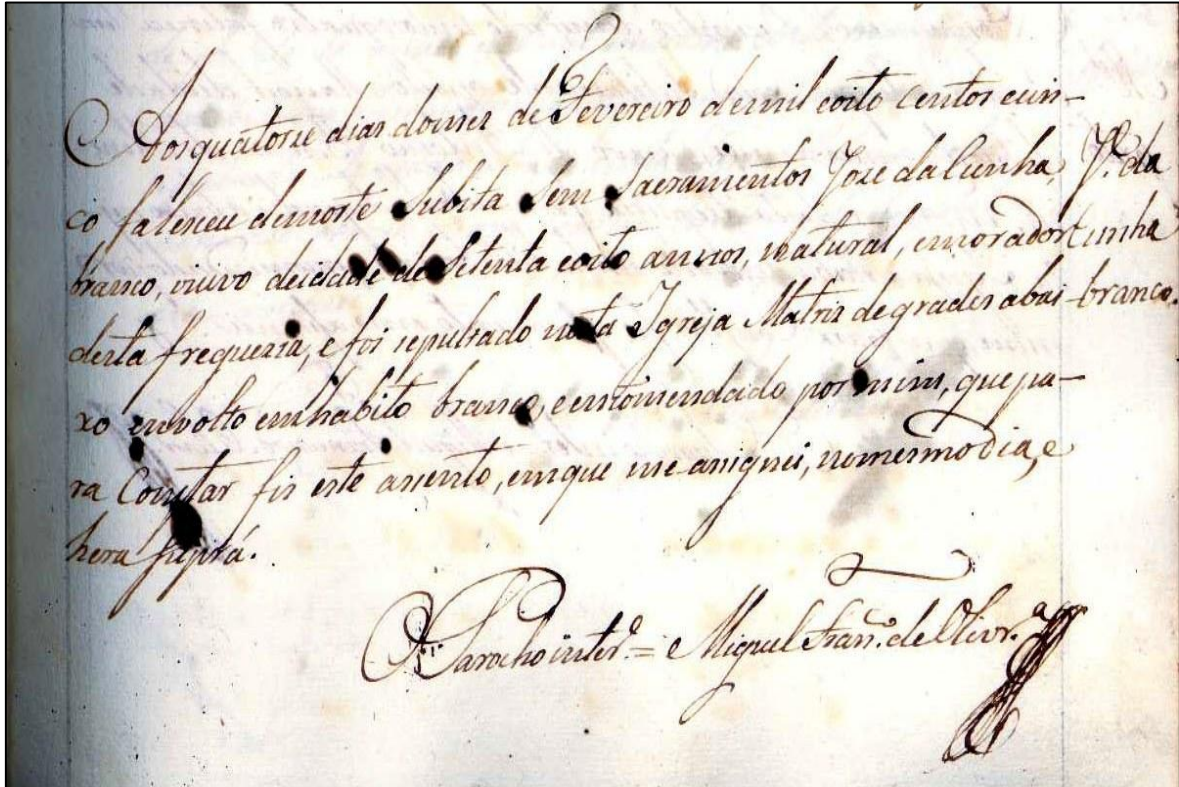 Aos quatorse dias do mes de Fevereiro de mil e oito centos e cin-
co faleceu de morte Subita Sem Sacramentos Joze da Cunha,
branco, viuvo de idade de Setenta e oito annos, natural, e morador
desta freguezia, e foi sepultado nesta Igreja Matriz de grades abai-
xo envolto em habito branco, e encomendado por mim, que pa-
ra Constar fis este assento, em que me asignei, no mesmo dia, e
hera supra.
O Parocho inter.º = Miguel Fran.co de Olivr.ª
J.e da
Cunha
branco.